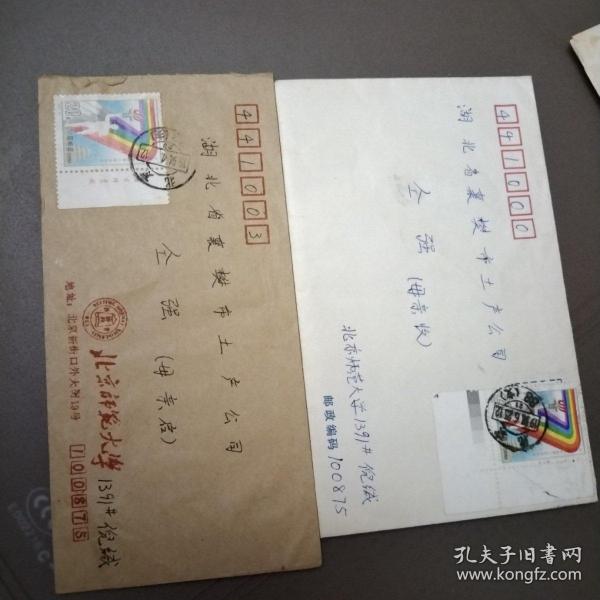 441003
湖北省襄樊市土产公司
仝强(母亲启)
地址：北京新街口外大街19号
北京师范大学 1391# 倪绒
100875
441000
湖北省襄樊市土产公司
仝强(母亲收)
北京师范大学1391#倪绒
邮政编码 100875
孔夫子旧书网
www.kongfz.com